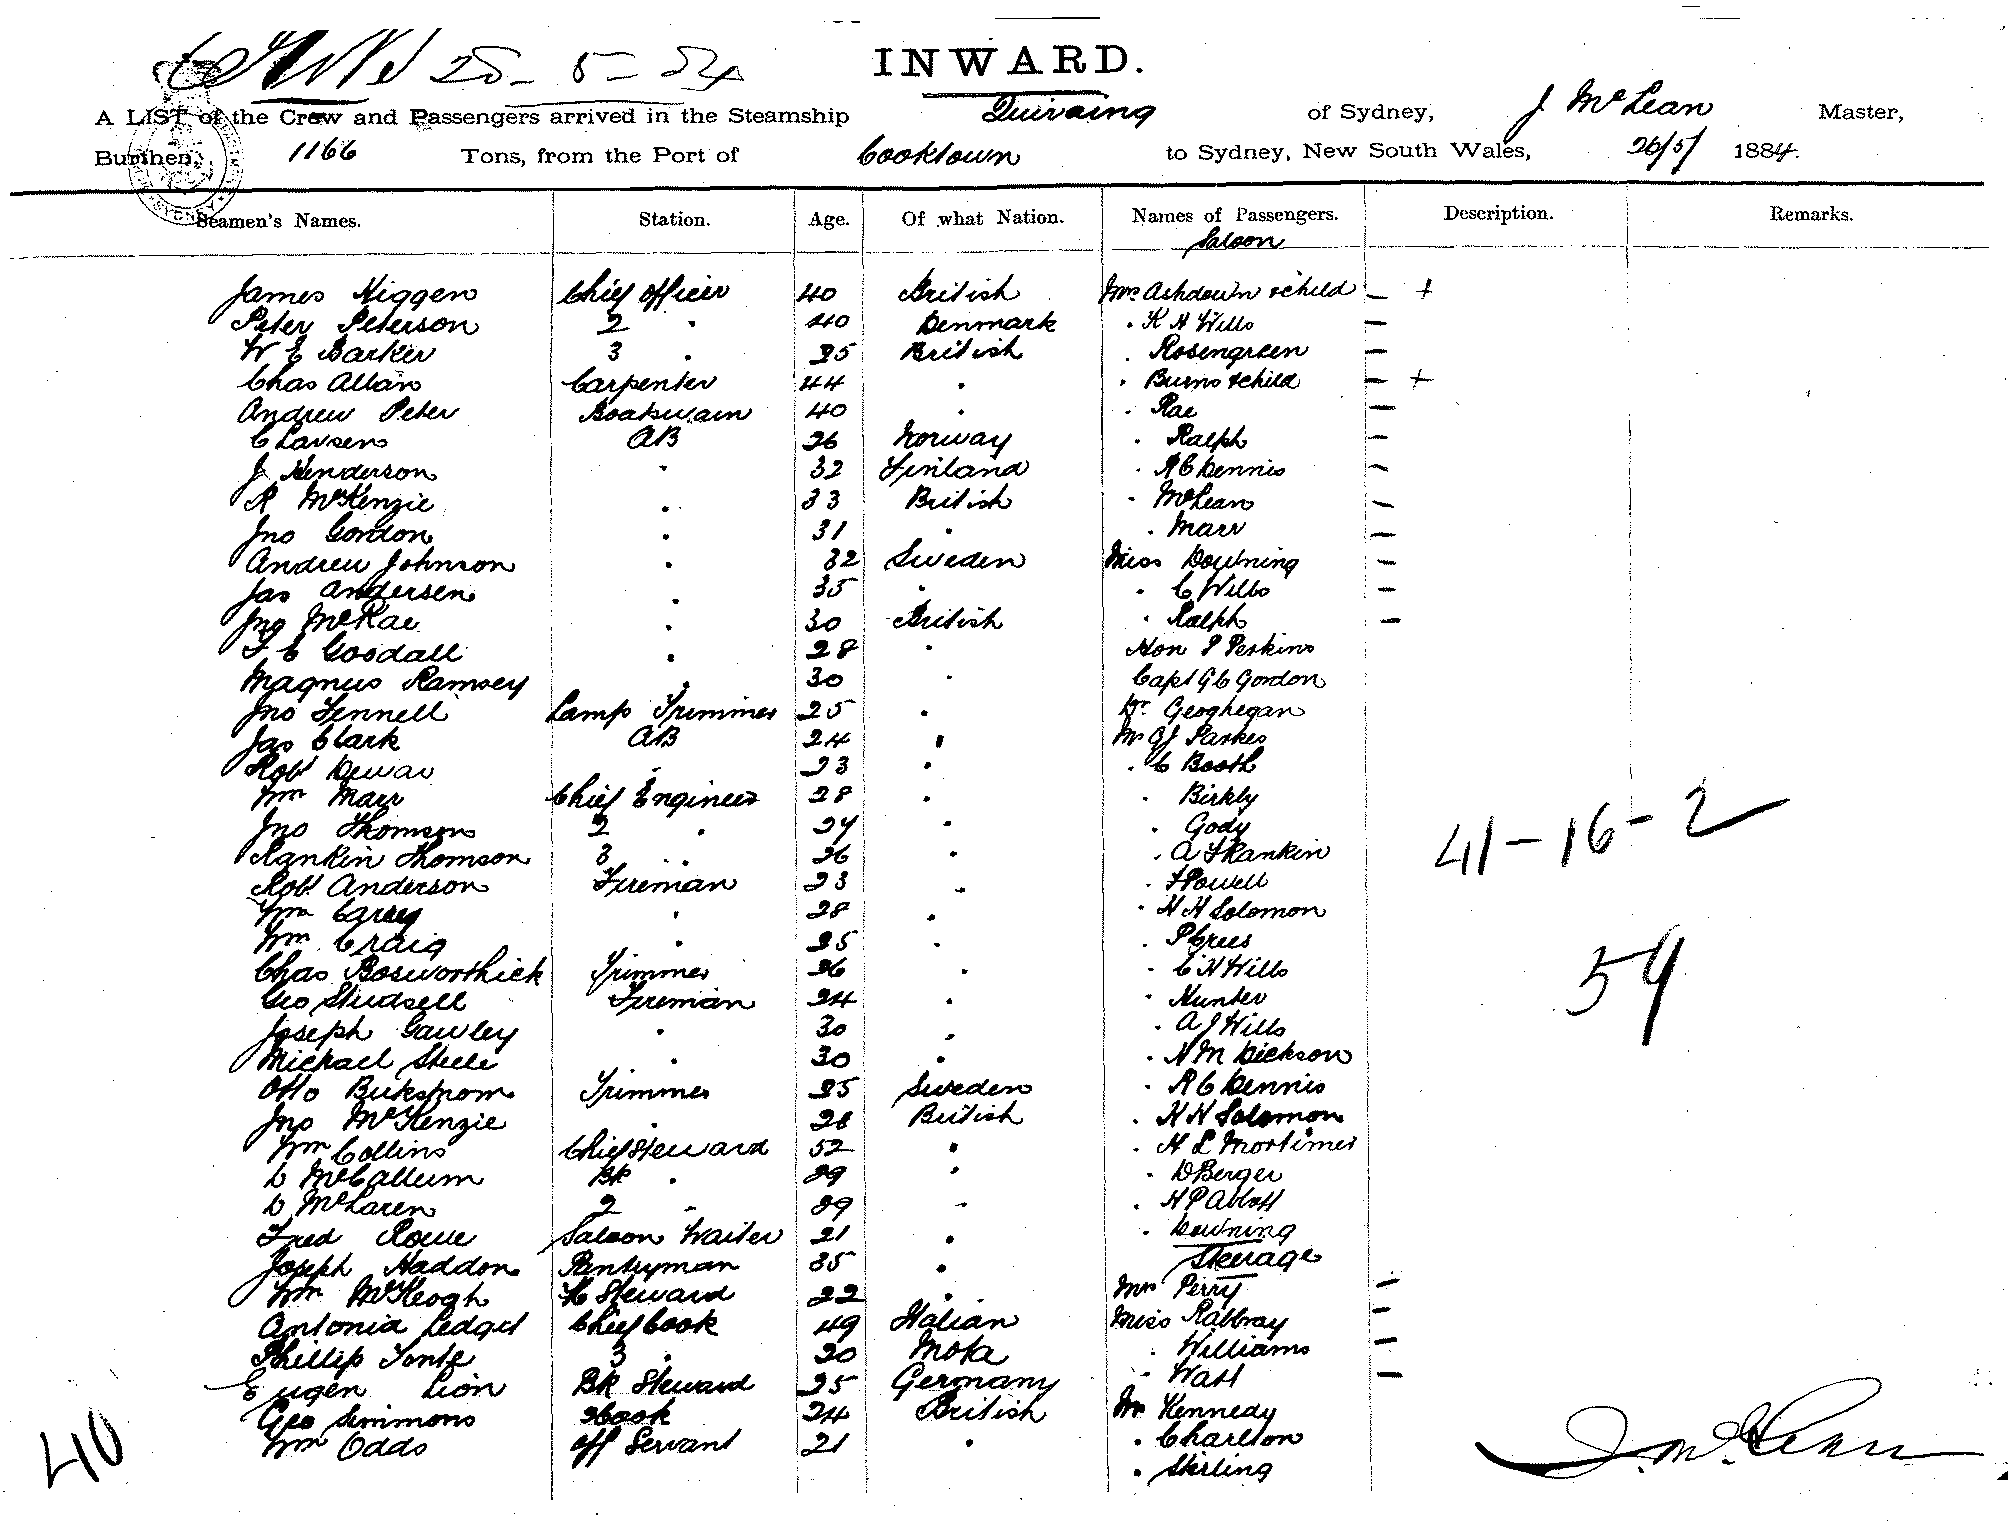 25-5-84
INWARD.
A LIST of the Crew and Passengers arrived in the Steamship Quiraing of Sydney, J McLean Master,
Burthen, 1166 Tons, from the Port of Cooktown to Sydney, New South Wales, 26/5/ 1884.
SYDNEY
Seamen's Names. Station. Age. Of what Nation. Names of Passengers. Description. Remarks.
Saloon
James Niggen Chief Officer 40 British Mrs Ashdown & child – +
Peter Peterson 2 " 40 Denmark " K H Wills –
W E Barker 3 " 25 British " Rosengreen –
Chas Allan Carpenter 44 " " Burns & child – +
Andrew Peter Boatswain 40 " " Rae –
C Larsens AB 26 Norway " Ralph –
J Henderson " 32 Finland " R C Dennis –
R McKenzie " 33 British " McLean –
Jno Gordon " 31 " " Marr –
Andrew Johnson " 32 Sweden Miss Downing –
Jas Andersen " 35 " " C Wills –
Jno McRae " 30 British " Ralph –
F C Goodall " 28 " Hon P Perkins
Magnus Ramsey " 30 " Capt G C Gordon
Jno Fennell Lamp Trimmer 25 " Dr Geoghegan
Jas Clark AB 24 " Mr G J Parkes
Robt Dewar " 23 " " C Booth
Wm Marr Chief Engineer 28 " " Birkly
Jno Thomson 2 " 24 " " Gody
41-16-2
Rankin Thomson 3 " 26 " " A F Rankin
Robt Anderson Fireman 23 " " F Powell
Wm Grey " 28 " " H H Solomon
Wm Craig " 25 " " P Crees
Chas Bosworthick Trimmer 26 " " C H Wills
59
Geo Studsell Fireman 24 " " Hunter
Joseph Gawley " 30 " " A J Wills
Michael Steele " 30 " " N M Dickson
Otto Buckstrom Trimmer 25 Sweden " R C Dennis
Jno McKenzie " 28 British " H H Solomon
Wm Collins Chief Steward 52 " " H L Mortimer
D McCallum BK " 29 " " D Berger
D McLaren 2 " 29 " " H P Abbott
Fred Rowe Saloon Waiter 21 " " Downing
Steerage
Joseph Haddon Pantryman 35 "
Wm McKeogh Steward 22 " Mrs Perry –
Antonia Ledget Chief Cook 49 Italian Miss Rabbray –
Phillip Tonte 3 " 20 Mota " Williams –
Eugen Lion BK Steward 25 Germany " Watt –
Geo Simmons 2 Cook 24 British Mr Kennedy
Wm Odds Off Servant 21 " " Charlton
" Stirling
40
J. McLean